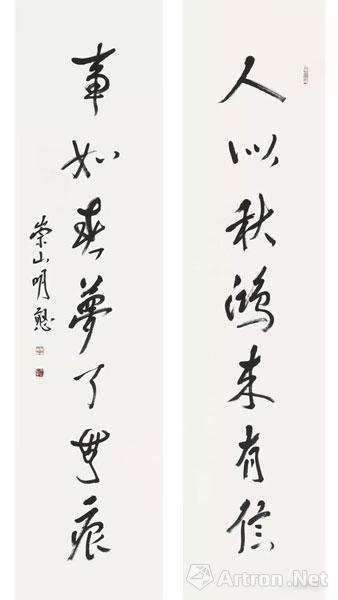 人似秋鸿来有信
事如春梦了无痕
Artron.Net